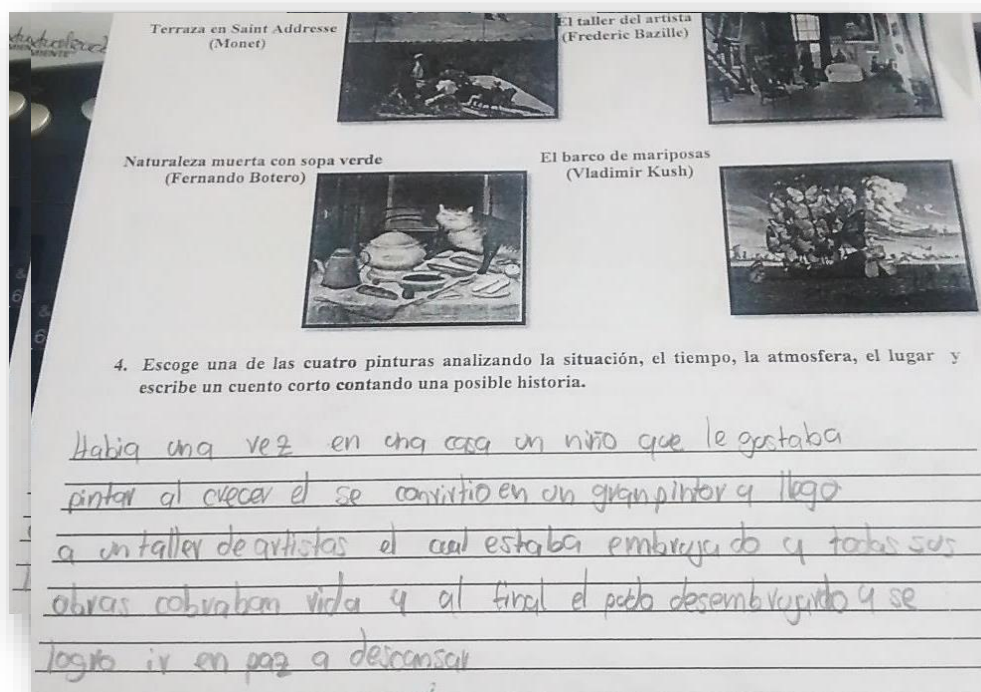 Terraza en Saint Addresse
(Monet)
El taller del artista
(Frederic Bazille)
Naturaleza muerta con sopa verde
(Fernando Botero)
El barco de mariposas
(Vladimir Kush)
4. Escoge una de las cuatro pinturas analizando la situación, el tiempo, la atmosfera, el lugar y
escribe un cuento corto contando una posible historia.
Habia una vez en una casa un niño que le gostaba
pintar al crecer el se convirtio en un gran pintor y llego
a un taller de artistas el cual estaba embrujado y todas sus
obras cobraban vida y al final el pudo desembrujarlo y se
logro ir en paz a descansar